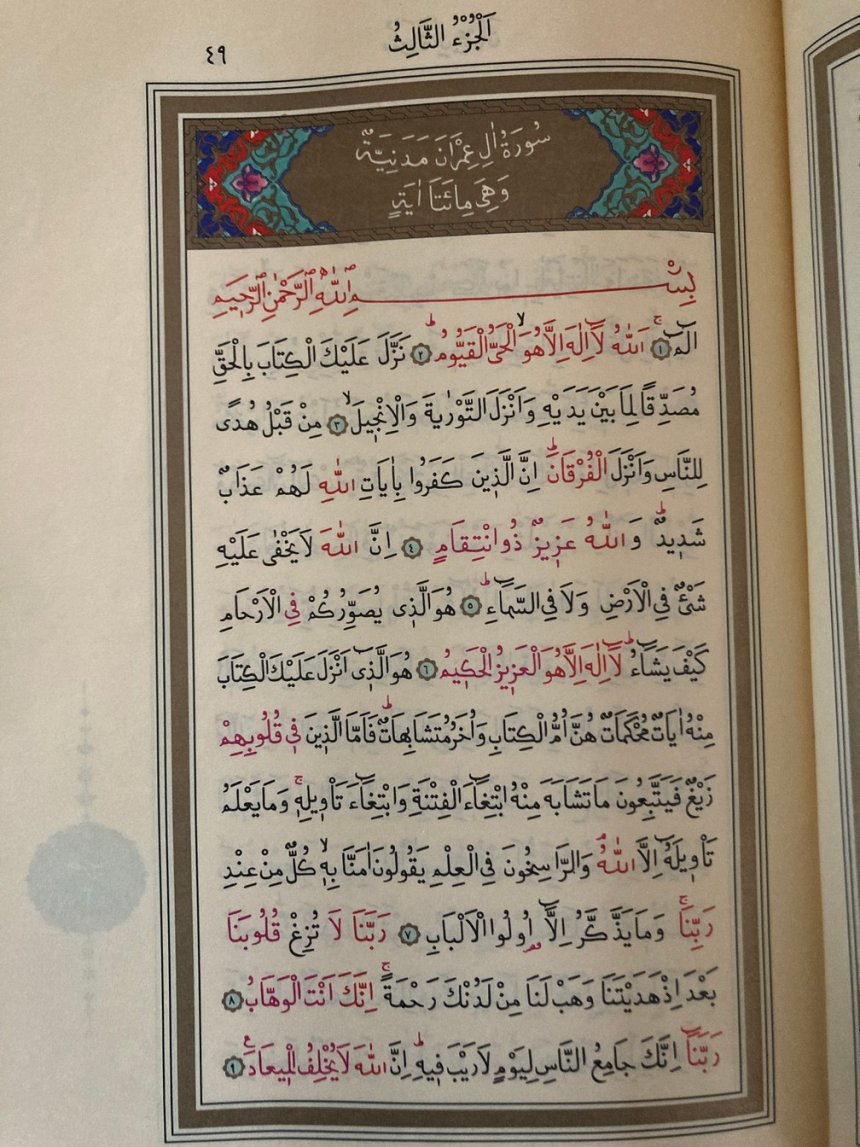 اَلْجُزْءُ الثَّالِثُ
٤٩
سُورَةُ اٰلِ عِمْرٰنَ مَدَنِيَّةٌ
وَهِيَ مِائَتَا اٰيَةٍ
بِسْمِ اللّٰهِ الرَّحْمٰنِ الرَّحِيمِ
الٓمٓ ۚ ﴿١﴾ اَللّٰهُ لَٓا اِلٰهَ اِلَّا هُوَۙ الْحَيُّ الْقَيُّومُۜ ﴿٢﴾ نَزَّلَ عَلَيْكَ الْكِتَابَ بِالْحَقِّ
مُصَدِّقًا لِمَا بَيْنَ يَدَيْهِ وَاَنْزَلَ التَّوْرٰيةَ وَالْاِنْجِيلَۙ ﴿٣﴾ مِنْ قَبْلُ هُدًى
لِلنَّاسِ وَاَنْزَلَ الْفُرْقَانَۜ اِنَّ الَّذِينَ كَفَرُوا بِاٰيَاتِ اللّٰهِ لَهُمْ عَذَابٌ
شَدِيدٌۜ وَاللّٰهُ عَزِيزٌ ذُو انْتِقَامٍ ﴿٤﴾ اِنَّ اللّٰهَ لَا يَخْفٰى عَلَيْهِ
شَيْءٌ فِي الْاَرْضِ وَلَا فِي السَّمَٓاءِۜ ﴿٥﴾ هُوَ الَّذِي يُصَوِّرُكُمْ فِي الْاَرْحَامِ
كَيْفَ يَشَٓاءُۜ لَٓا اِلٰهَ اِلَّا هُوَ الْعَزِيزُ الْحَكِيمُ ﴿٦﴾ هُوَ الَّذِٓي اَنْزَلَ عَلَيْكَ الْكِتَابَ
مِنْهُ اٰيَاتٌ مُحْكَمَاتٌ هُنَّ اُمُّ الْكِتَابِ وَاُخَرُ مُتَشَابِهَاتٌۜ فَاَمَّا الَّذِينَ فِي قُلُوبِهِمْ
زَيْغٌ فَيَتَّبِعُونَ مَا تَشَابَهَ مِنْهُ ابْتِغَٓاءَ الْفِتْنَةِ وَابْتِغَٓاءَ تَأْوِيلِهِۚ وَمَا يَعْلَمُ
تَأْوِيلَهُٓ اِلَّا اللّٰهُۢ وَالرَّاسِخُونَ فِي الْعِلْمِ يَقُولُونَ اٰمَنَّا بِهِۙ كُلٌّ مِنْ عِنْدِ
رَبِّنَاۚ وَمَا يَذَّكَّرُ اِلَّٓا اُو۬لُوا الْاَلْبَابِ ﴿٧﴾ رَبَّنَا لَا تُزِغْ قُلُوبَنَا
بَعْدَ اِذْ هَدَيْتَنَا وَهَبْ لَنَا مِنْ لَدُنْكَ رَحْمَةًۚ اِنَّكَ اَنْتَ الْوَهَّابُ ﴿٨﴾
رَبَّنَٓا اِنَّكَ جَامِعُ النَّاسِ لِيَوْمٍ لَا رَيْبَ فِيهِۜ اِنَّ اللّٰهَ لَا يُخْلِفُ الْمِيعَادَ۟ ﴿٩﴾